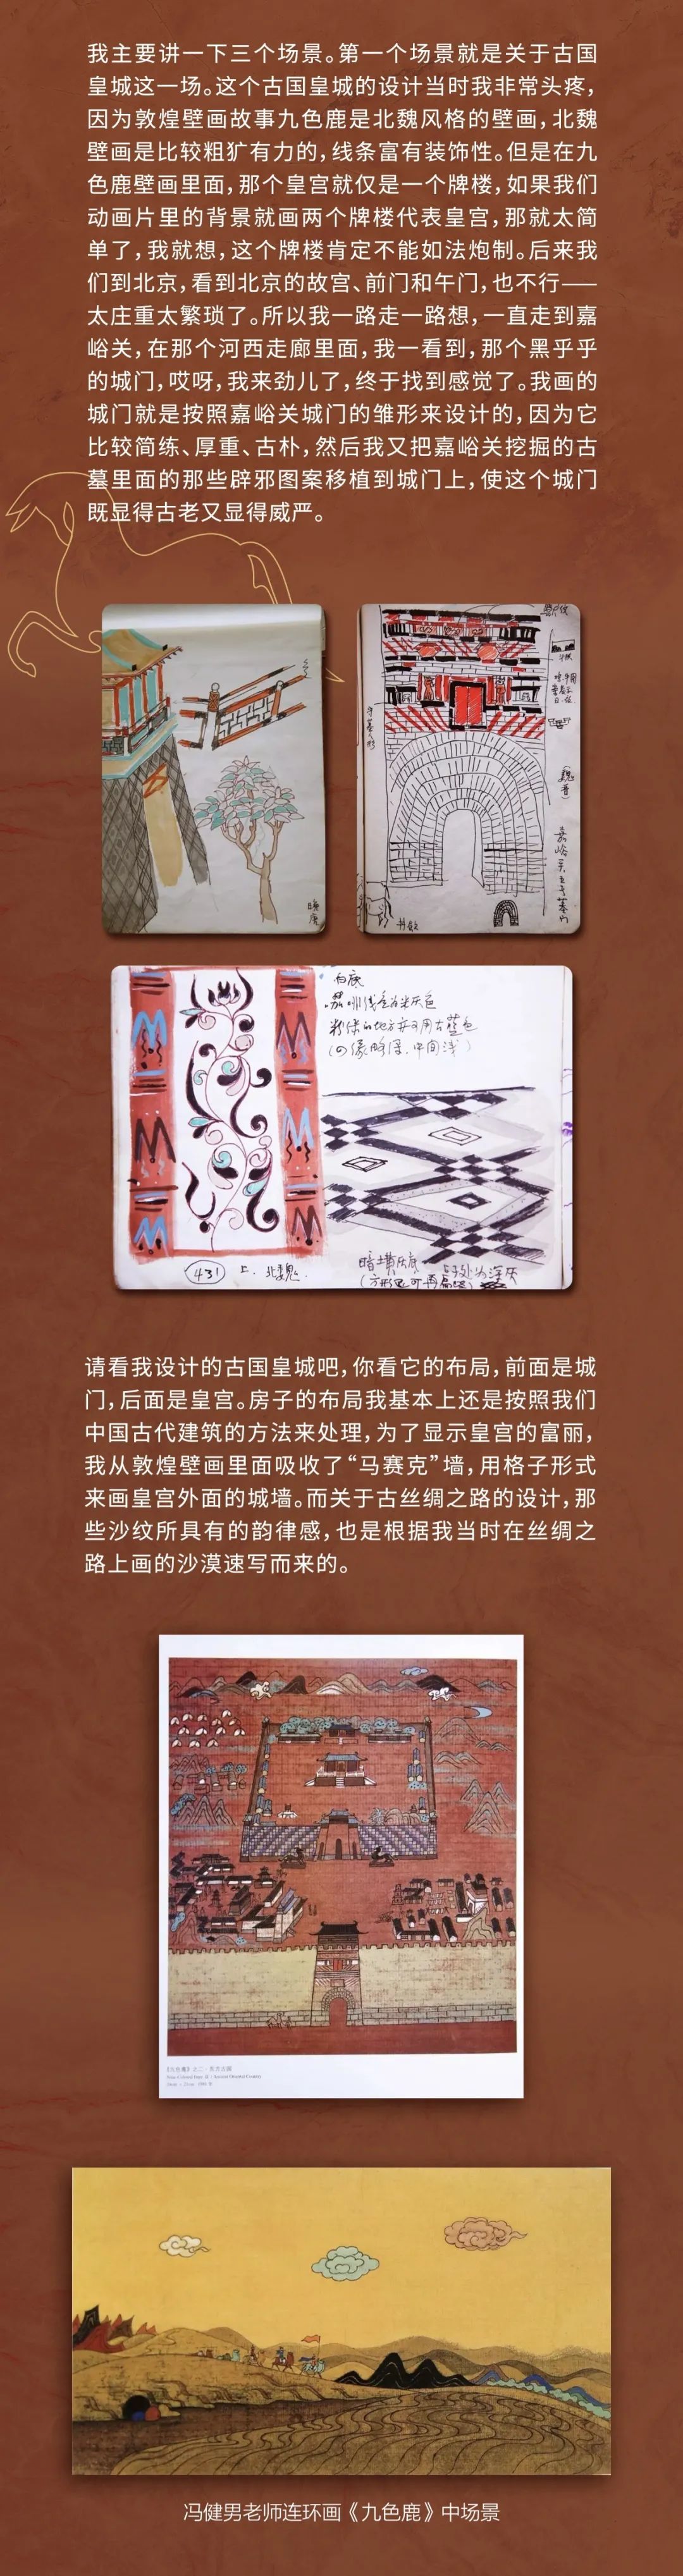 我主要讲一下三个场景。第一个场景就是关于古国
皇城这一场。这个古国皇城的设计当时我非常头疼，
因为敦煌壁画故事九色鹿是北魏风格的壁画，北魏
壁画是比较粗犷有力的，线条富有装饰性。但是在九
色鹿壁画里面，那个皇宫就仅是一个牌楼，如果我们
动画片里的背景就画两个牌楼代表皇宫，那就太简
单了，我就想，这个牌楼肯定不能如法炮制。后来我
们到北京，看到北京的故宫、前门和午门，也不行——
太庄重太繁琐了。所以我一路走一路想，一直走到嘉
峪关，在那个河西走廊里面，我一看到，那个黑乎乎
的城门，哎呀，我来劲儿了，终于找到感觉了。我画的
城门就是按照嘉峪关城门的雏形来设计的，因为它
比较简练、厚重、古朴，然后我又把嘉峪关挖掘的古
墓里面的那些辟邪图案移植到城门上，使这个城门
既显得古老又显得威严。
晚唐
（魏晋）
白底
（可像略深，中间浅）
431 上. 北魏.
请看我设计的古国皇城吧，你看它的布局，前面是城
门，后面是皇宫。房子的布局我基本上还是按照我们
中国古代建筑的方法来处理，为了显示皇宫的富丽，
我从敦煌壁画里面吸收了“马赛克”墙，用格子形式
来画皇宫外面的城墙。而关于古丝绸之路的设计，那
些沙纹所具有的韵律感，也是根据我当时在丝绸之
路上画的沙漠速写而来的。
《九色鹿》之二·东方古国
冯健男老师连环画《九色鹿》中场景